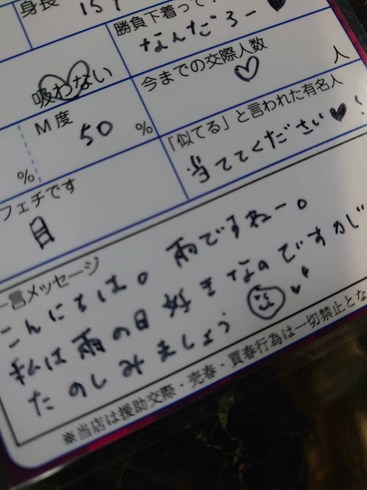 身長
157
勝負下着って?
なんだろー
吸わない
今までの交際人数
♡
人
M度
50
%
%
「似てる」と言われた有名人
当ててください♥!
フェチです
目
一言メッセージ
こんにちは。雨ですねー。
私は雨の日好きなのですがじ
たのしみましょう
※当店は援助交際・売春・買春行為は一切禁止とな